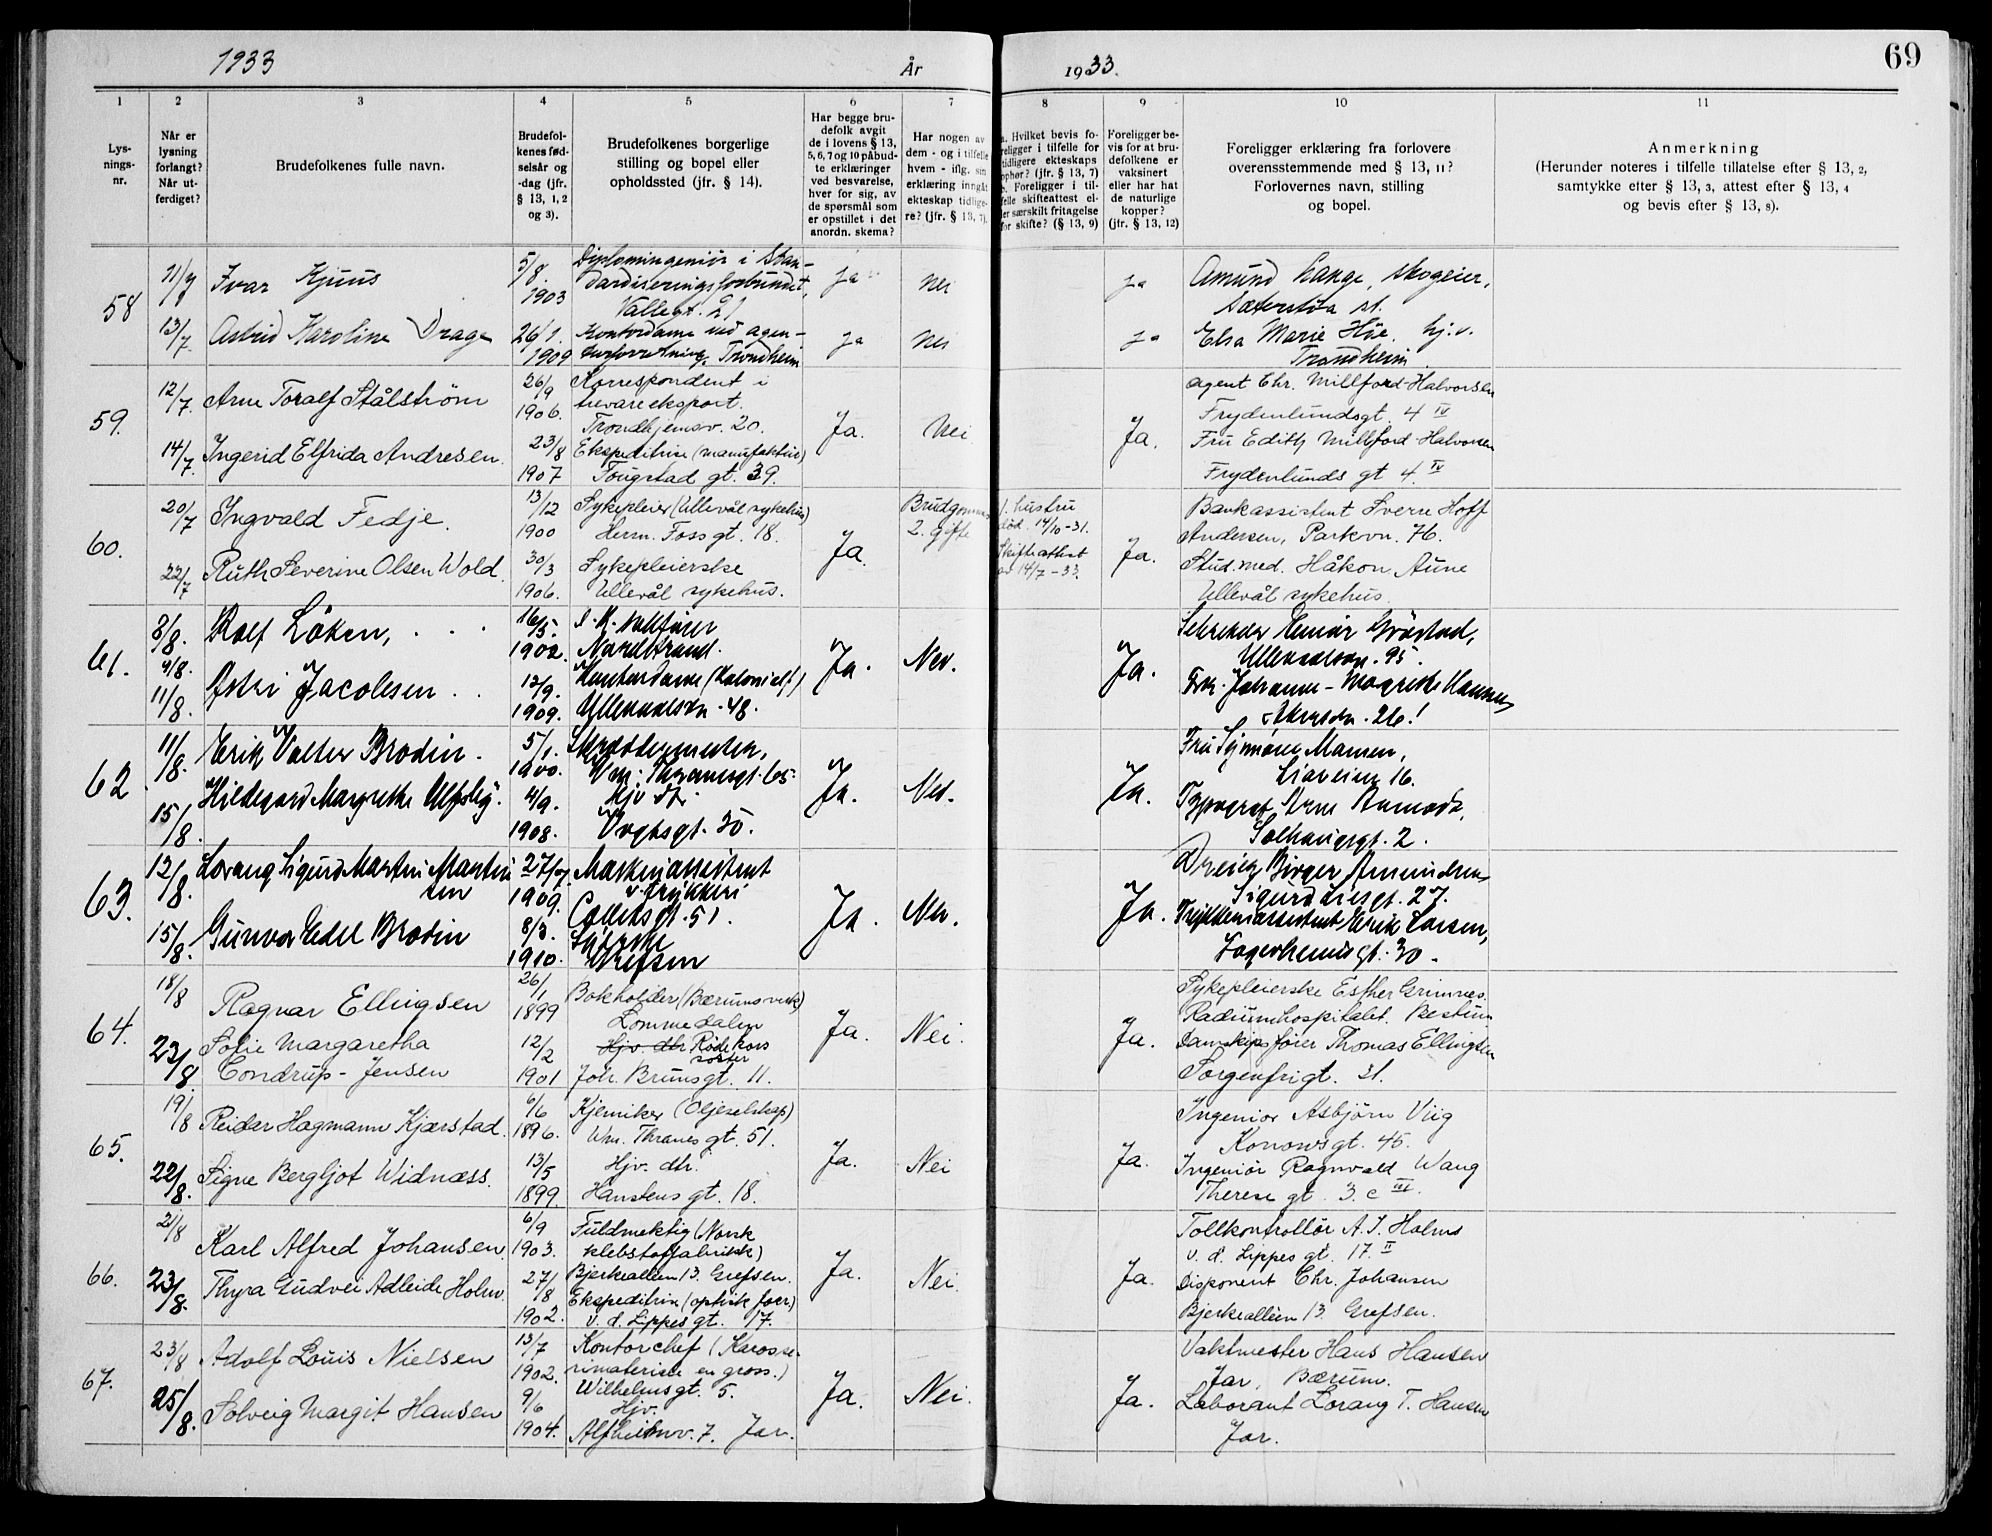 69
1933
År
1933.
1
2
3
4
5
6
7
8
9
10
11
Lys-
nings-
nr.
Når er
lysning
forlangt?
Når ut-
ferdiget?
Brudefolkenes fulle navn.
Brudefol-
kenes fød-
selsår og
-dag (jfr.
§ 13, 1, 2
og 3).
Brudefolkenes borgerlige
stilling og bopel eller
opholdssted (jfr. § 14).
Har begge bru-
defolk avgit
de i lovens § 13,
5, 6, 7 og 10 påbud-
te erklæringer
ved besvarelse,
hver for sig, av
de spørsmål som
er opstillet i det
anordn. skema?
Har nogen av
dem - og i tilfelle
hvem - iflg. sin
erklæring inngåt
ekteskap tidlige-
re? (jfr. § 13, 7).
a. Hvilket bevis fo-
religger i tilfelle for
tidligere ekteskaps
ophør? (jfr. § 13, 7)
b. Foreligger i til-
felle skifteattest el-
ler særskilt fritagelse
for skifte? (§ 13, 9)
Foreligger be-
vis for at bru-
defolkene er
vaksinert
eller har hat
de naturlige
kopper?
(jfr. § 13, 12)
Foreligger erklæring fra forlovere
overensstemmende med § 13, 11?
Forlovernes navn, stilling
og bopel.
Anmerkning
(Herunder noteres i tilfelle tillatelse efter § 13, 2,
samtykke efter § 13, 3, attest efter § 13, 4
og bevis efter § 13, 8).
58
11/7
Ivar Kjuus
5/8.
1903
Diplomingeniør i Stan-
dardiseringsforbundet,
Vallegt. 21
ja
nei
ja
Amund Lange, skogeier,
st.
13/7.
Astrid Karoline Drage
26/1.
1909
Kontordame ved agen-
turforretning, Trondheim
ja
nei
ja
Elsa Marie Höe, hj.v.
Trondheim
59.
12/7.
Arne Toralf Stålström
26/9
1906.
Korrespondent i
trevareeksport.
Trondhjemsv. 20.
Ja.
Nei
Ja.
Agent Chr. Millford-Halvorsen
Frydenlundsgt. 4 IV
14/7.
Ingerid Elfrida Andresen.
23/8
1907
Ekspeditrise (manufaktur)
Tougstad gt. 39.
Fru Edith Millford-Halvorsen
Frydenlunds gt 4. IV
60.
20/7
Ingvald Fedje.
13/12
1900
Sykepleier (Ullevål sykehus)
Herm. Foss gt. 18.
Ja.
Brudgommen
2. gifte
1. hustru
død. 14/10-31.
Skifteattest
av 14/7-33.
Ja.
Bankassistent Sverre Hoff
Andersen, Parkvn. 76.
22/7
Ruth Severine Olsen Wold.
30/3
1906.
Sykepleierske
Ullevål sykehus.
Stud. med. Håkon Aune
Ullevål sykehus.
61.
8/8.
Rolf Löken,
16/5.
1902.
Nordstrand.
Ja.
Nei.
Ja.
Sekretær Gröstad,
Ullevaalsvn. 95.
4/8.
11/8.
Jacobsen
12/9.
1909.
Kontordame (Kolonialf.)
Ullevaalsvn. 48.
Frk. Johanne-Magrethe Hansen,
Akersvn. 26!
62
11/8.
Erik Valter Brodin.
5/1.
1900.
Skræddermester,
Wm. Thranesgt. 65.
Ja.
Nei.
Ja.
Fru Signora Mansen,
Liaveien 16.
15/8.
Hildegard Margrethe Ulfsby.
4/9.
1908.
Hjv dtr
Vogtsgt. 30.
Typograf Arne Aamodt,
Solhaugsgt. 2.
63.
12/8.
Lorang Sigurd Martin Martin
sen
27/7.
1909.
Maskinassistent
v. trykkeri
Colletts gt. 51.
Ja.
Nei.
Ja.
Dreier Birger Amundsen
Sigurd Liesgt. 27.
15/8.
Gunvor Edel Brodin
8/3.
1910.
Syerske
Grefsen
Trykkeriassistent Erik Larsen,
Fagerheimsgt. 30.
64.
18/8
Ragnar Ellingsen
26/1
1899
Bokholder (Bærums verk)
Lommedalen
Ja.
Nei.
Ja.
Sykepleierske Esther Grimnes.
Radiumhospitalet. Bestum
23/8
Sofie Margaretha
Condrup-Jensen
12/2
1901
Hjv. dtr Røde kors
søster
Joh. Bruns gt. 11.
Damskipsfører Thomas Ellingsen
Sorgenfrigt. 31.
65.
19/8
Reidar Hagmann Kjærstad.
6/6
1896.
Kjemiker (Oljeselskap)
Wm. Thranes gt. 51.
Ja.
Nei
Ja.
Ingeniør Asbjörn Viig
Konows gt. 45.
22/8.
Signe Bergljot Widnæss.
13/5
1899.
Hjv. dtr.
Hanstens gt. 18.
Ingeniør Ragnvald Wang
Therese gt. 3. c III.
66.
21/8
Karl Alfred Johansen.
6/9
1903.
Fuldmektig (Norsk
klebstoffabrikk)
Bjerkealleen 13. Grefsen.
Ja.
Nei.
Ja.
Tollkontrollør A. J. Holms
v. d. Lippes gt. 17. II
23/8.
Thyra Gudvei Adleide Holm
27/8
1902.
Ekspeditrise (optisk forr.)
v. d. Lippes gt. 17.
Disponent Chr. Johansen
Bjerkealleen 13. Grefsen.
67.
23/8
Adolf Louis Nielsen
13/7
1902.
Kontorchef (Karosse-
rimateriell en gross.)
Wilhelms gt. 5.
Ja.
Nei.
Ja.
Vaktmester Hans Hansen
Jar, Bærum.
25/8.
Solveig Margit Hansen
9/6
1904.
Hjv.
Alfheimv. 7. Jar.
Laborant Lorang T. Hansen
Jar.